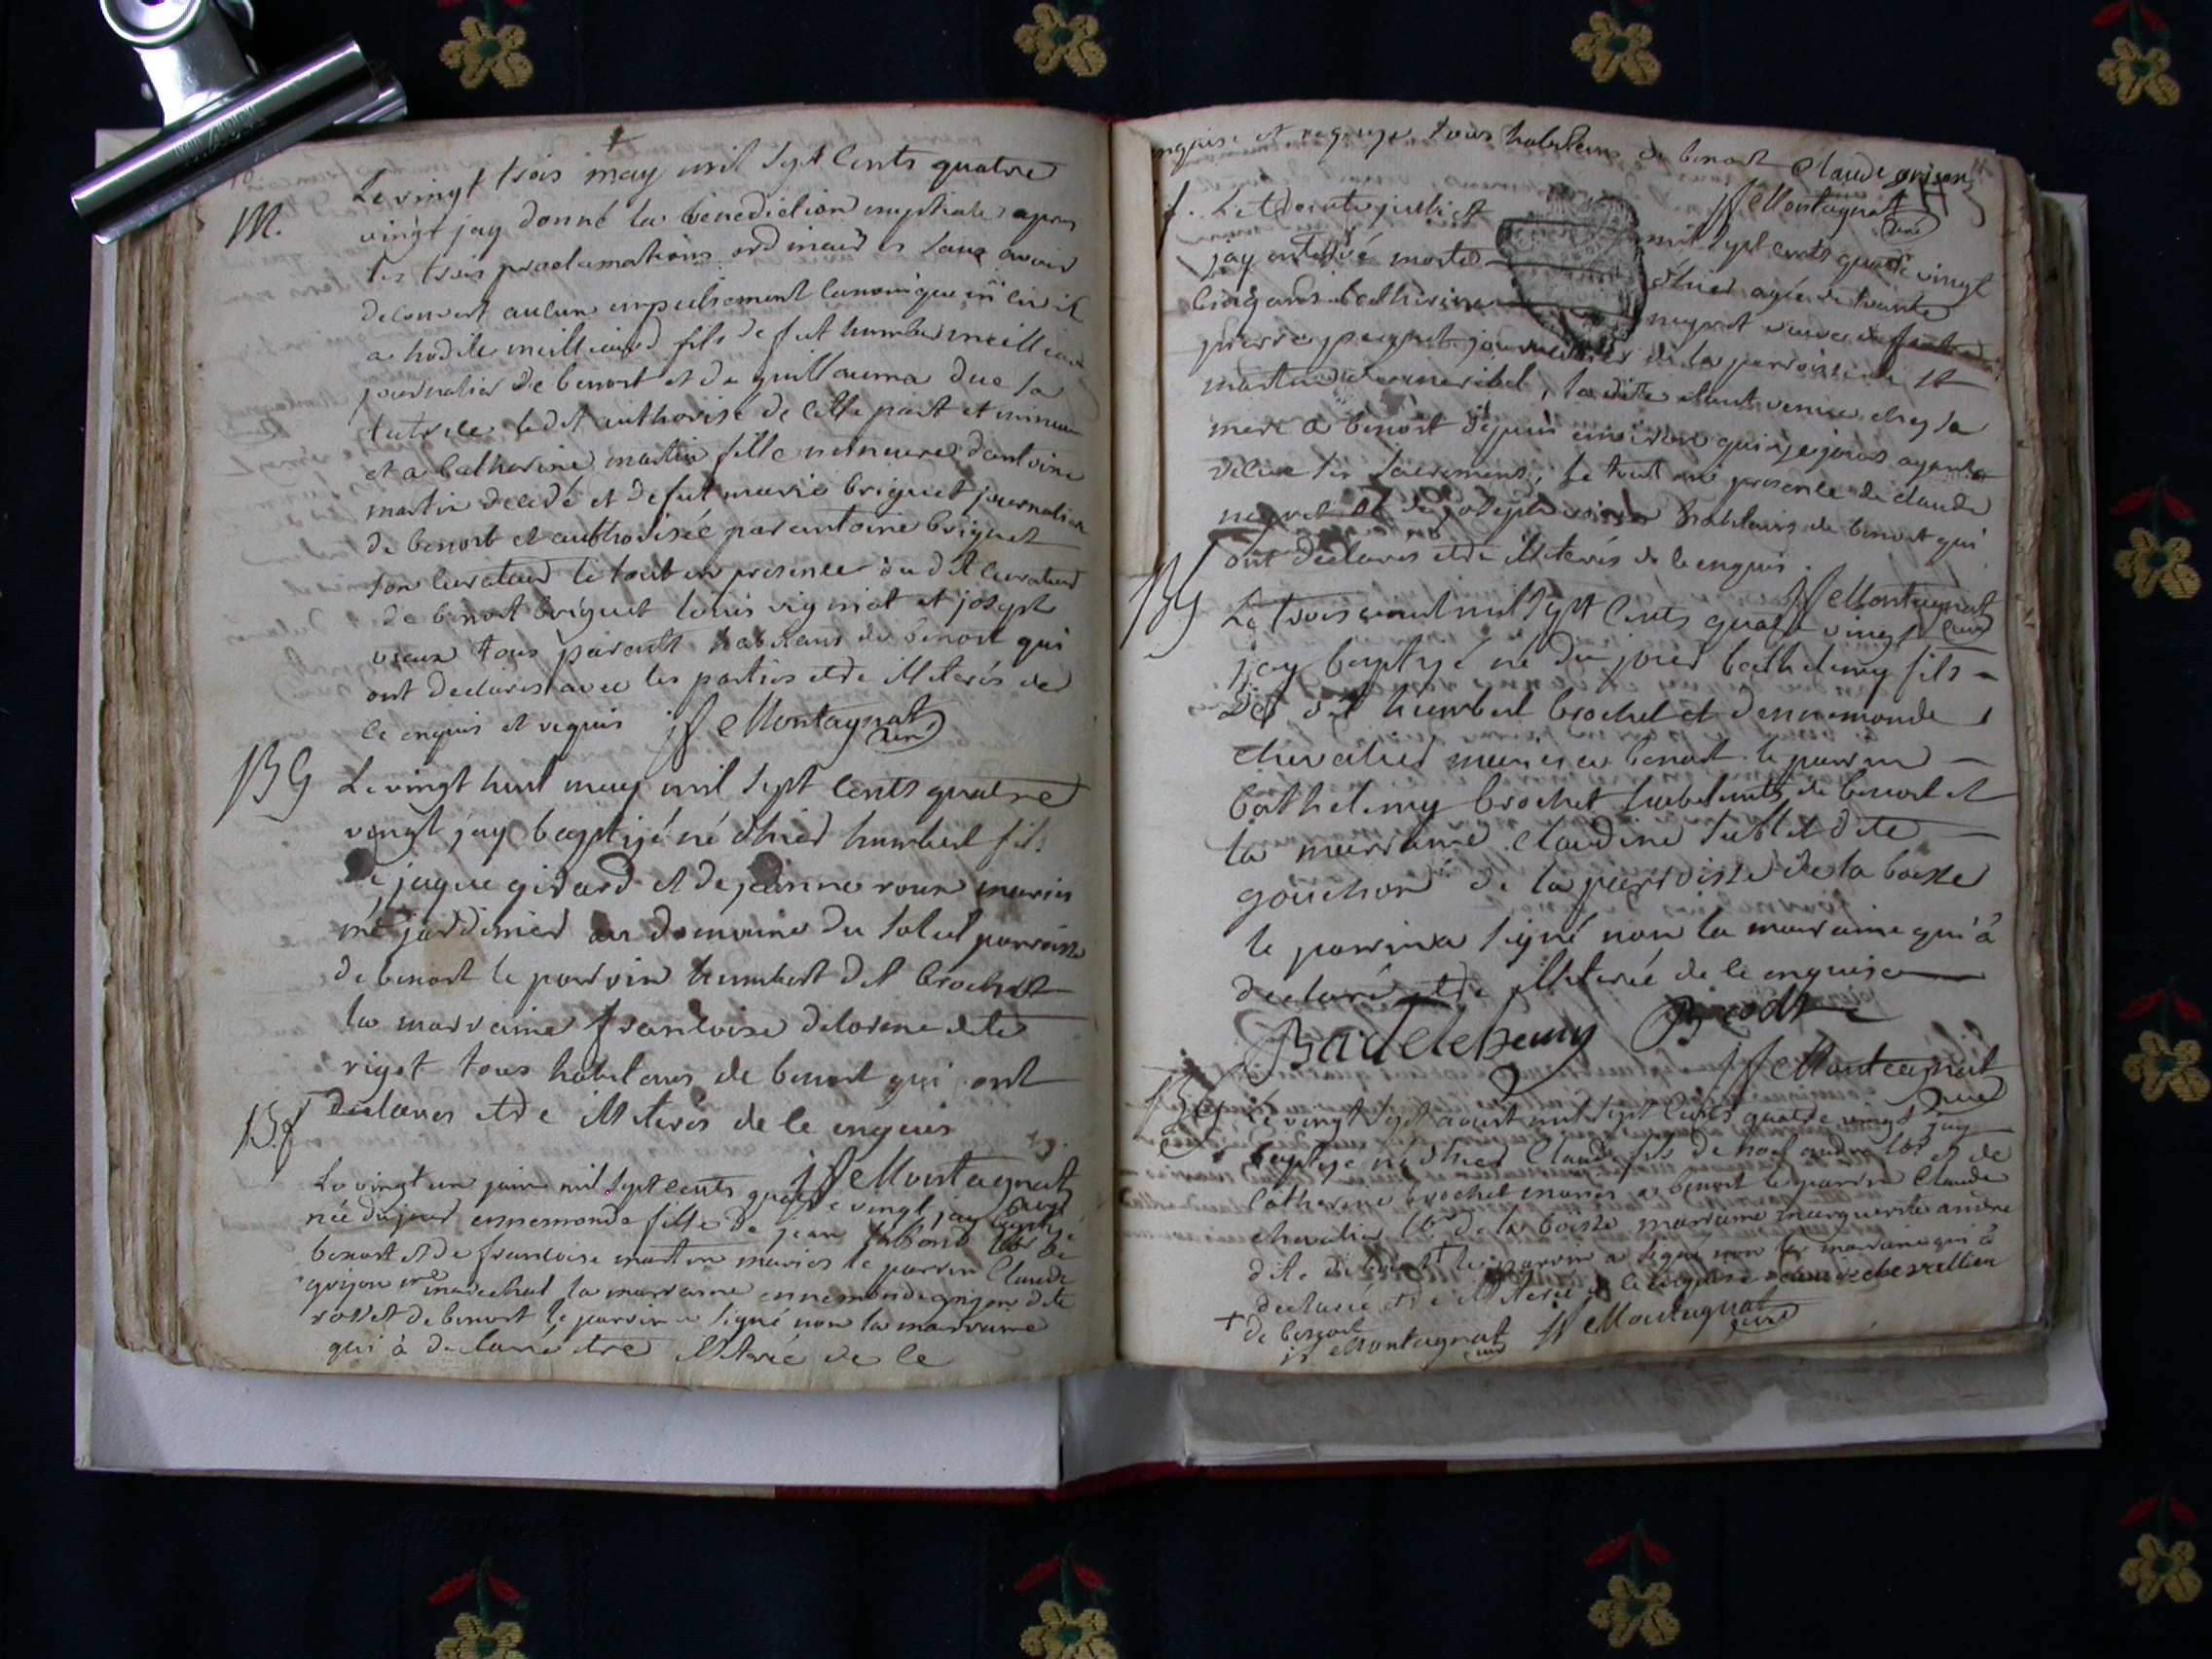 M.
Le vingt trois may mil sept cents quatre
vingt jay donné la benediction nuptiale apres
les trois proclamations ordinaires sans avoir
decouvert aucun empechement canonique ni civil
a hodile meilliard fils de fut humber meilliard
journalier de benost et de guillauma duc sa
tutrice le dit authorisé de cette part et mineur
et a catherine martin fille mineure dantoine
martin decedé et de fut marie briguet journalier
de benost et authorisée par antoine briguet
son curateur le tout en presence du dit curateur
de benost briguet louis vigniat et joseph
vieux tous parents habitans de benost qui
ont declarés avec les parties etre illiterés de
ce enquis et requis jf Montagnat curé
BG
Le vingt huit may mil sept cents quatre
vingt jay baptizé né dhier humbert fils
de jaque girard et de jeanne roux mariés
me jardinier au domaine du soleil parroisse
de benost le parrin humbert dit brochet
la marraine francoise delorme dite
rigot tous habitans de benost qui ont
declarés etre illiterés de ce enquis
jf Montagnat curé
B.f
Le vingt un juin mil sept cents quatre vingt jay baptizé
née du jour ennemonde fille de jean lbr de
benost et de francoise martin mariés le parrin Claude
grison me marechal la marraine ennemonde grison dite
rosset de benost le parrin a signé non la marraine
qui à declaré etre illiterée de ce
enquise et requise tous habitans de benost Claude grison
jf Montagnat curé
f. Le trente juillet mil sept cents quatre vingt
jay enterré morte dhier agée de trente
cinq ans catherine negret veuve de
pierre journalier de la parroisse de st
martin de miribel, la dite etant venue chez sa
mere a benost depuis environ quinze jours ayant
recue ses sacremens; le tout en presence de claude
negret et de joseph habitans de benost qui
ont declarés etre illiterés de ce enquis.
jf Montagnat curé
BG
Le trois aout mil sept cents quatre vingt
jay baptizé né du jour bathelemy fils
de humbert brochet et dennemonde
chevalier mariés a benost le parrin
bathelemy brochet habitants de benost et
la marraine claudine sublet dite
gouchon de la parroisse de la boisse
le parrin a signé non la marraine qui à
declaré etre illiterée de ce enquise
jf Montagnat curé
BG
Le vingt sept aoust mil sept cents quatre vingt jay
baptizé né dhier Claude fils de noel andré lbr et de
Catherine brochet mariés a benost le parrin Claude
chevalier lbr de la boisse marraine marguerite andré
dite le parrin a signé non la marraine qui à
declarée etre illiterée de ce enquise
+ de benost
jf Montagnat curé jf Montagnat curé